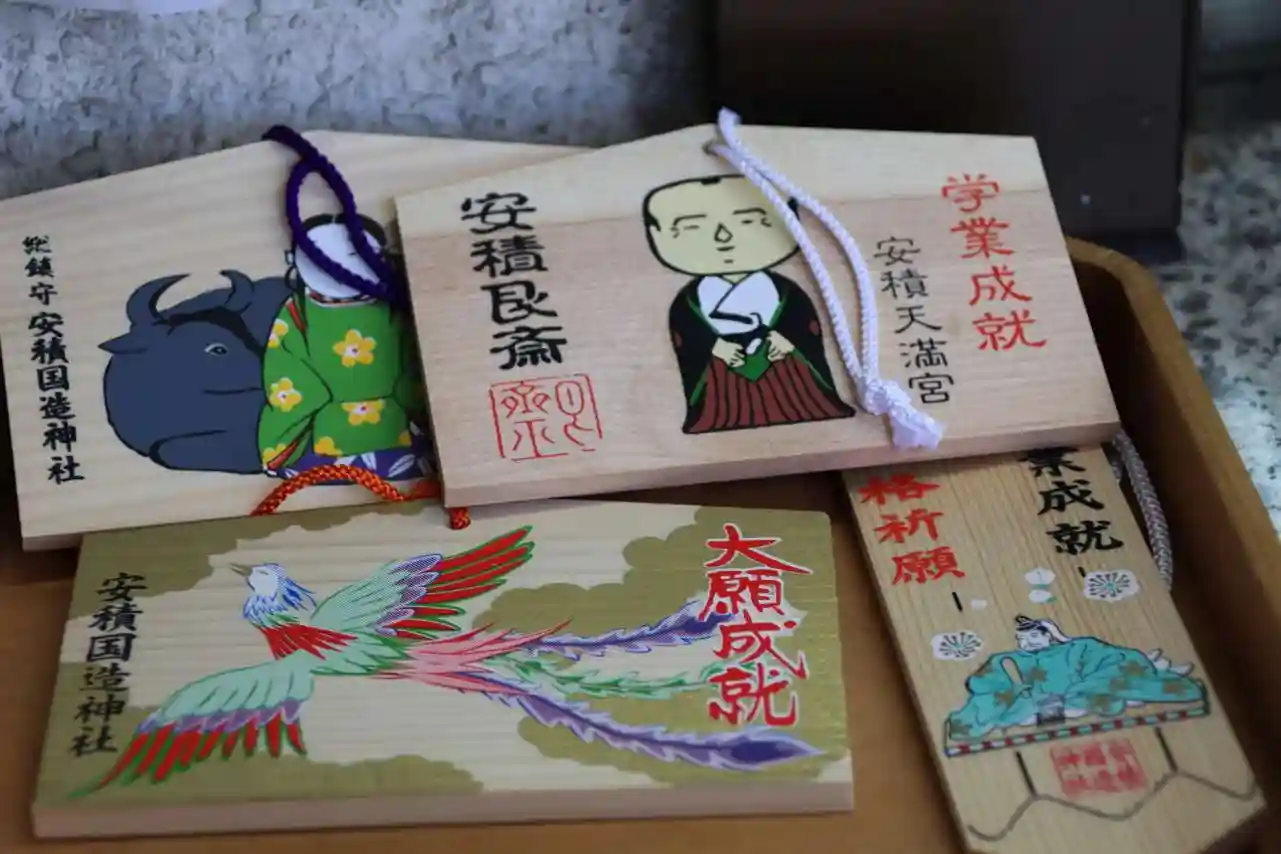 総鎮守 安積国造神社
学業成就
安積天満宮
安積艮斎
大願成就
安積国造神社
業成就
格祈願